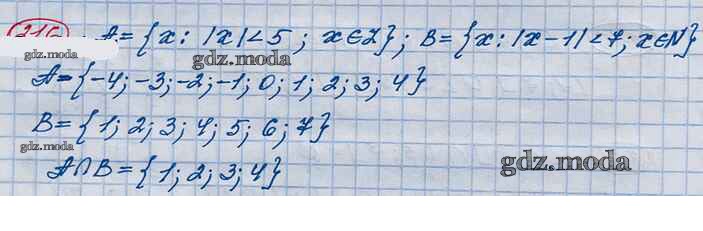 216 A={x: |x|<5; x∈Z}; B={x: |x-1|<7; x∈N}
gdz.moda
A={-4; -3; -2; -1; 0; 1; 2; 3; 4}
B={1; 2; 3; 4; 5; 6; 7}
gdz.moda
gdz.moda
A∩B={1; 2; 3; 4}